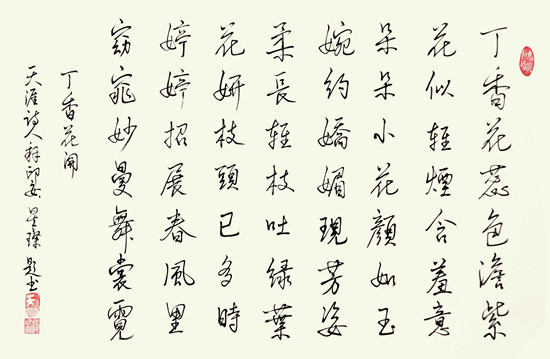 丁香花蕊色澹紫
花似輕煙含羞意
朵朵小花顏如玉
婉約嬌媚現芳姿
柔長輕枝吐绿葉
花妍枝頭已多時
婷婷招展春風里
窈窕妙曼舞裳霓
丁香花開
天涯诗人